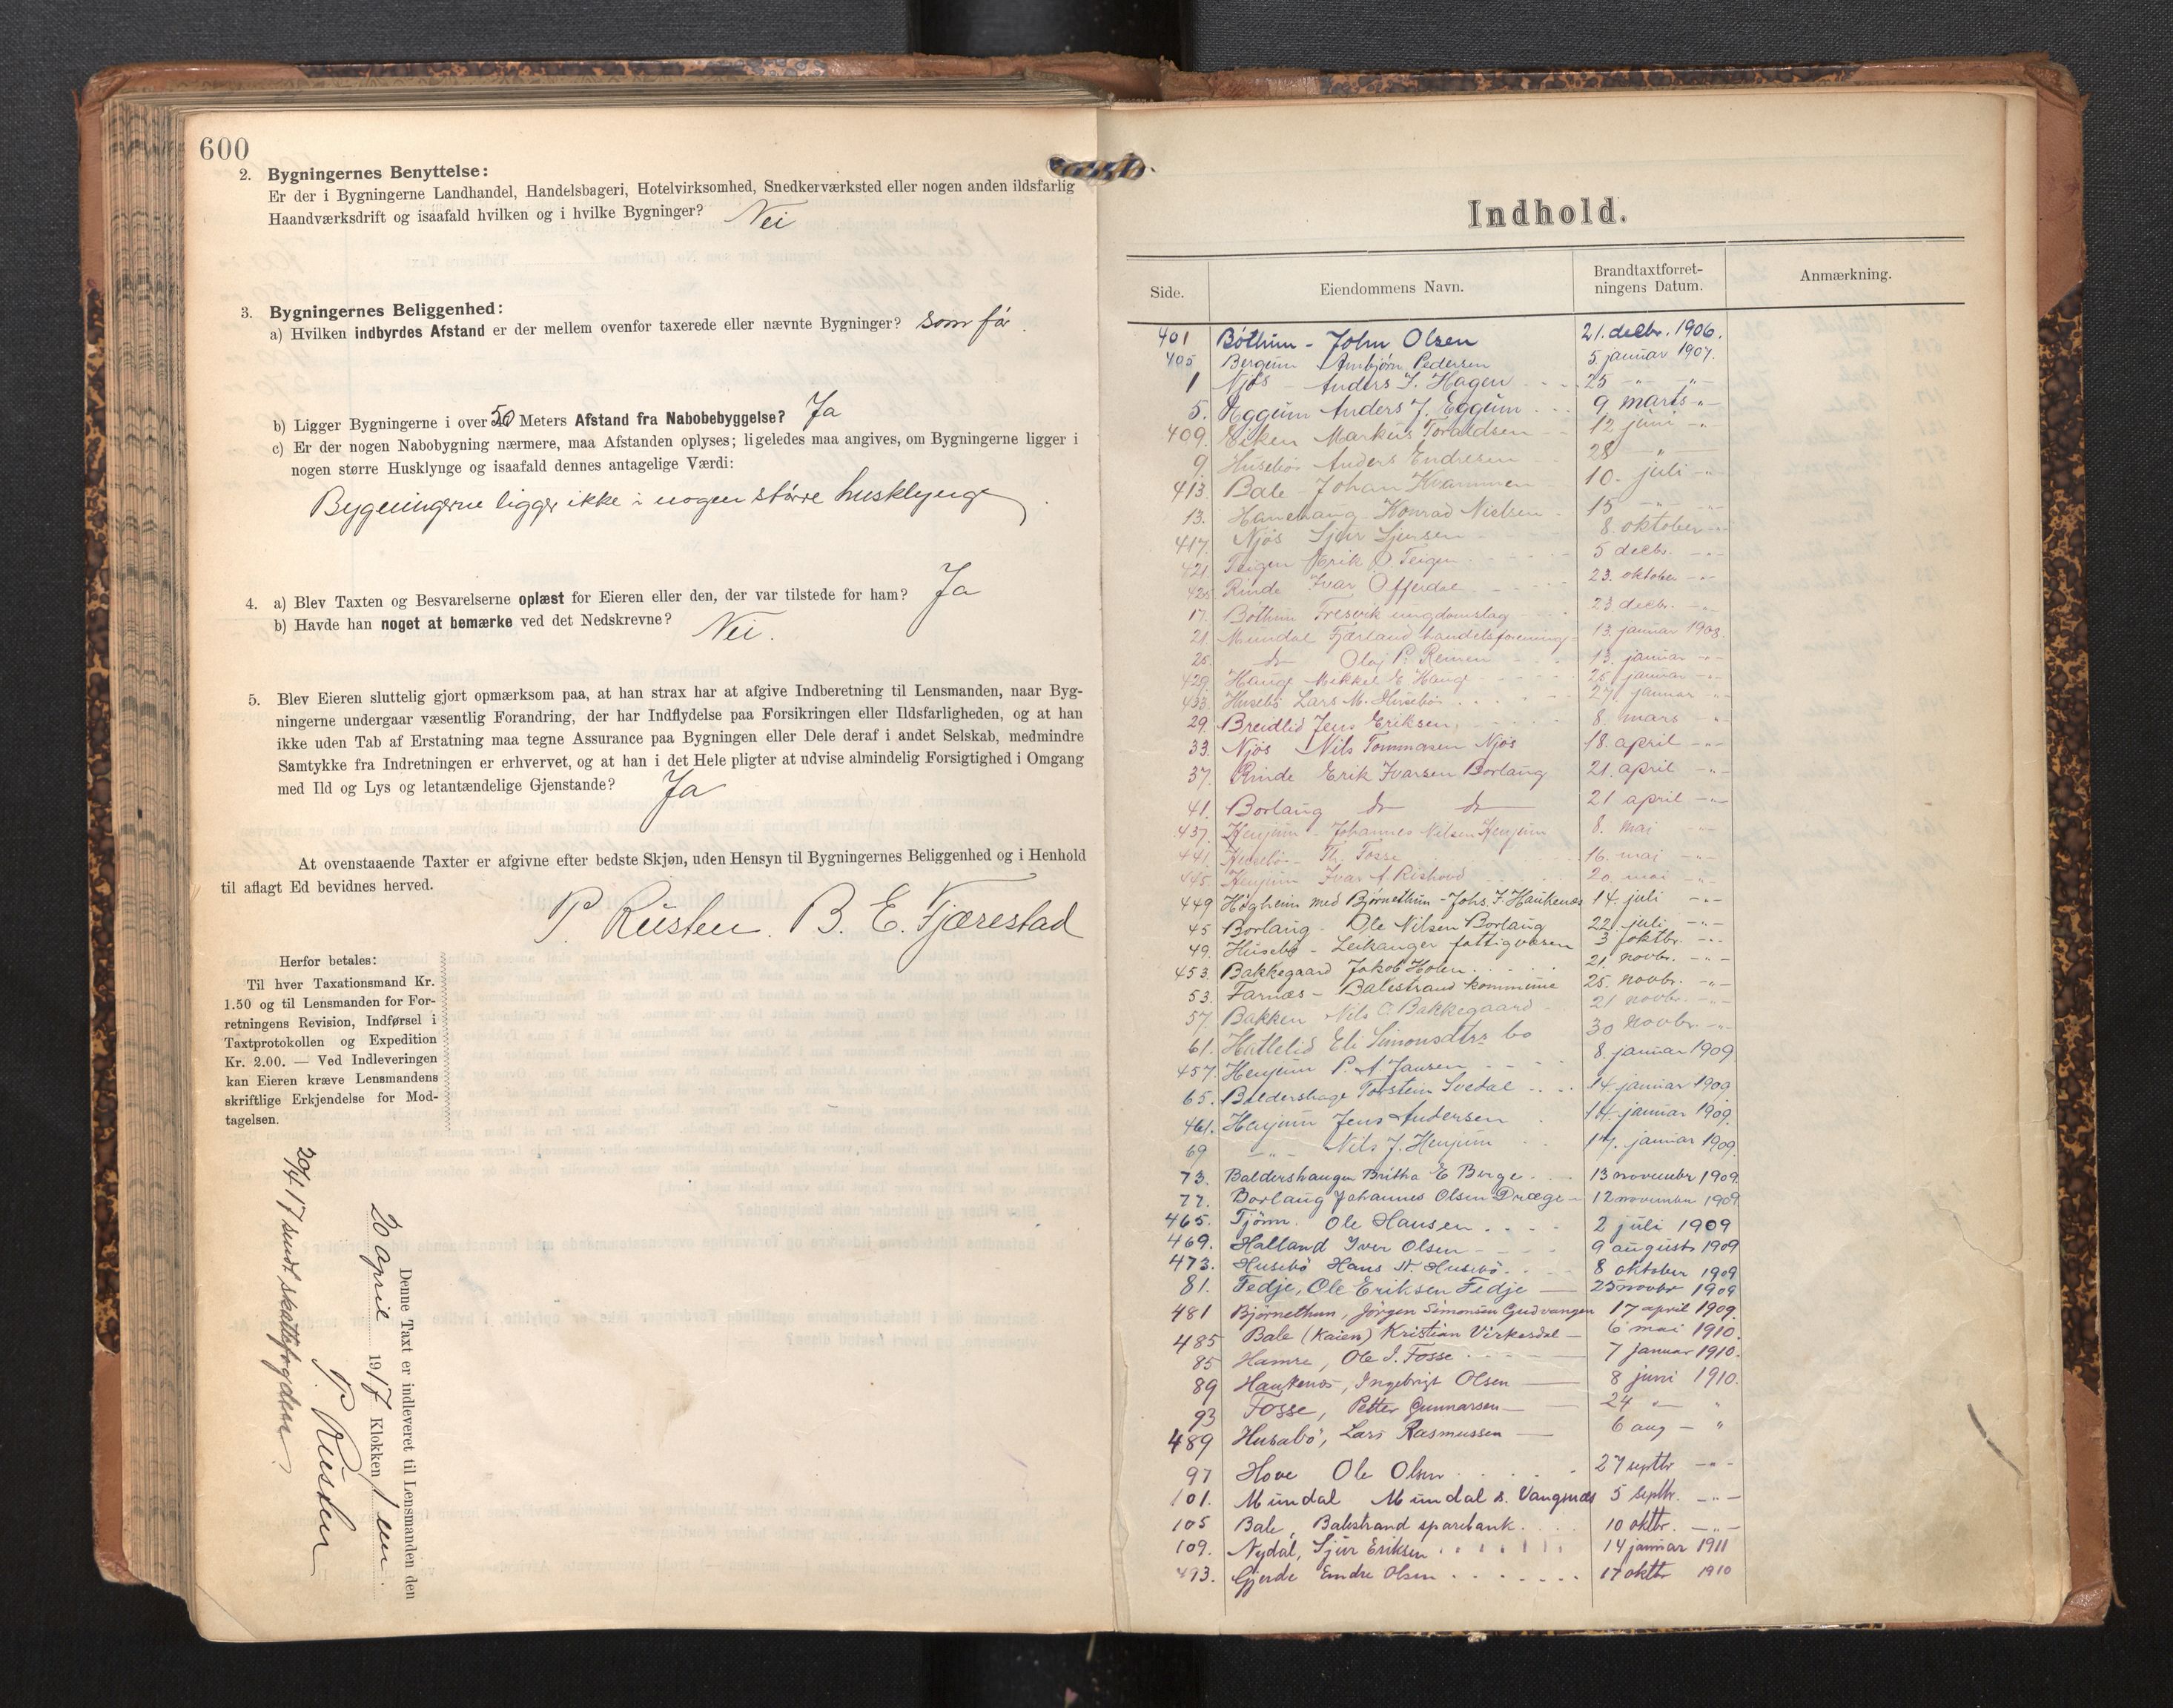 600
2. Bygningernes Benyttelse:
Er der i Bygningerne Landhandel, Handelsbageri, Hotelvirksomhed, Snedkerværksted eller nogen anden ildsfarlig
Haandværksdrift og isaafald hvilken og i hvilke Bygninger? Nei
3. Bygningernes Beliggenhed:
a) Hvilken indbyrdes Afstand er der mellem ovenfor taxerede eller nævnte Bygninger? som før.
b) Ligger Bygningerne i over 50 Meters Afstand fra Nabobebyggelse? Ja
c) Er der nogen Nabobygning nærmere, maa Afstanden oplyses; ligeledes maa angives, om Bygningerne ligger i
nogen større Husklynge og isaafald dennes antagelige Værdi:
Bygningerne ligger ikke i nogen större husklynge.
4. a) Blev Taxten og Besvarelserne oplæst for Eieren eller den, der var tilstede for ham? Ja
b) Havde han noget at bemærke ved det Nedskrevne? Nei.
5. Blev Eieren sluttelig gjort opmærksom paa, at han strax har at afgive Indberetning til Lensmanden, naar Byg-
ningerne undergaar væsentlig Forandring, der har Indflydelse paa Forsikringen eller Ildsfarligheden, og at han
ikke uden Tab af Erstatning maa tegne Assurance paa Bygningen eller Dele deraf i andet Selskab, medmindre
Samtykke fra Indretningen er erhvervet, og at han i det Hele pligter at udvise almindelig Forsigtighed i Omgang
med Ild og Lys og letantændelige Gjenstande? Ja
At ovenstaaende Taxter er afgivne efter bedste Skjøn, uden Hensyn til Bygningernes Beliggenhed og i Henhold
til aflagt Ed bevidnes herved.
P. Rüsten. B. E. Fjærestad
Herfor betales:
Til hver Taxationsmand Kr.
1.50 og til Lensmanden for For-
retningens Revision, Indførsel i
Taxtprotokollen og Expedition
Kr. 2.00. — Ved Indleveringen
kan Eieren kræve Lensmandens
skriftlige Erkjendelse for Mod-
tagelsen.
Denne Taxt er indleveret til Lensmanden den
20 april 1917 Klokken 1 em.
P. Rüsten
20/4 17 sendt skattefogden.
Indhold.
Side. Eiendommens Navn. Brandtaxtforret-
ningens Datum. Anmærkning.
401 Böthun - John Olsen 21. decbr. 1906.
405 Bergum Arnbjørn Pedersen 5 januar 1907.
1 Njøs - Anders J. Hagen 25 -"- -"-
5. Eggum Anders J. Eggum 9 marts -"-
409. Eiken Markus Toraldsen 12 juni -"-
9. Husebø Anders Endresen 28 -"-
413. Bale Johan Kvammen 10. juli -"-
13. Hanehaug Konrad Nielsen 15 -"- -"-
417. Njøs Sjur Sjursen 8. oktober -"-
421. Teigen Erik O Teigen 5 decbr. -"-
425 Rinde Ivar Offerdal 23. oktober -"-
17. Bøthun Fresvik ungdomslag 23. decbr. -"-
21. Mundal Fjærland handelsforening 13. januar 1908.
25. do Olaf P. Reinen 13. januar -"-
429 Hauge Mikkel E Hauge 25. januar -"-
433. Husebø Lars M. Husebø 27. januar -"-
29. Breidlid Jens Eriksen 8. mars -"-
33. Njøs Nils Tommasen Njøs 18. april -"-
37. Rinde Erik Ivarsen Borlaug 21. april -"-
41. Borlaug do do 21 april -"-
437. Henjum - Johannes Nilsen Henjum 8. mai -"-
441. Husebø - Th. Fosse 16. mai -"-
445 Henjum Ivar A. Rishovd 20. mai -"-
449 Høgheim med Bjørnethun - Johs. J. Haukenæs 14. juli -"-
45 Borlaug - Ole Nilsen Borlaug 22. juli -"-
49. Husebø - Leikanger fattigvæsen 3 oktbr. -"-
453. Bakkegaard Jakob Holen 21. novbr. -"-
53. Farnæs - Balestrand kommune 25. novbr. -"-
57. Bakken Nils O Bakkegaard 21 novbr. -"-
61. Hatlelid Eli Simonsdtrs bo 30 novbr. -"-
457. Henjum P. A. Jansen 8. januar 1909
65. Baldershage Torstein Svedal 14 januar 1909
461. Henjum Jens Andersen 14. januar 1909.
69 -"- Nils J. Henjum 17. januar 1909
73. Baldershaugen Britha E Berge 13 novembr 1909.
77. Borlaug Johannes Olsen Dræge 12 november 1909.
465. Tjönn. Ole Hansen 2 juli 1909
469. Halland Iver Olsen 9 august 1909
473. Husebö Hans N. Husebö 8 oktober 1909
81. Fedje, Ole Eriksen Fedje 25 novbr 1909
481 Björnethun, Jörgen Simonsen Gudvangen 17 april 1909.
485 Bale (Kaien) Kristian Virkesdal 6 mai 1910.
85 Hamre, Ole J. Fosse 7 januar 1910.
89 Haukenæs, Ingebrigt Olsen 8 juni 1910.
93 Fosse, Petter Gunnarsen 24 -"- "
489 Husabö, Lars Rasmussen 6 aug - "
97 Hove Ole Olsen 27 septbr -"-
101. Mundal Mundal s. Vangsnæs 5 septbr. -"-
105 Bale, Balestrand sparebank. 10 oktbr. -"-
109. Nydal, Sjur Eriksen 14 januar 1911
493. Gjerde Endre Olsen 17 oktbr 1910